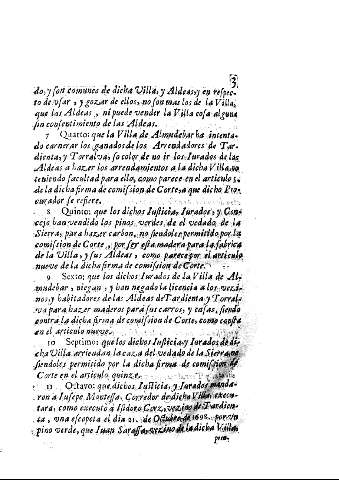 3
do, y son comunes de dicha Villa, y Aldeas, y en respec-
to de vsar, y gozar de ellos, no son mas los de la Villa,
que las Aldeas, ni puede vender la Villa cosa alguna
sin consentimiento de las Aldeas.
7 Quarto: que la Villa de Almudebar ha intenta-
do carnerar los ganados de los Arrendadores de Tar-
dienta, y Torralva, so color de no ir los Iurados de las
Aldeas a hazer los arrendamientos a la dicha Villa, no
teniendo facultad para ello, como parece en el articulo 5.
de la dicha firma de comission de Corte, a que dicho Pro-
curador se refiere.
8 Quinto: que los dichos Iusticia, Iurados, y Con-
cejo han vendido los pinos verdes de el vedado de la
Sierra, para hazer carbon, no siendoles permitido por la
comission de Corte, por ser esta madera para la fabrica
de la Villa, y sus Aldeas, como parece por el articulo
nueve de la dicha firma de comission de Corte.
9 Sexto: que los dichos Iurados de la Villa de Al-
mudebar, niegan, y han negado la licencia a los vezi-
nos, y habitadores de las Aldeas de Tardienta y Torral-
va para hazer maderos para sus carros, y casas, siendo
contra la dicha firma de comission de Corte, como consta
en el articulo nueve.
10 Septimo: que los dichos Iusticia, y Iurados de di-
cha Villa arriendan la caza del vedado de la Sierra, no
siendoles permitido por la dicha firma de comission de
Corte en el articulo quinze.
11 Octavo: que dichos Iusticia, y Iurados manda-
ron a Iusepe Montessa, Corredor de dicha Villa, execu-
tara; como executò a Isidoro Corz, vezino de Tardien-
ta, vna escopeta el dia 21. de Octubre de 1698. por vn
pino verde, que Iuan Sarassa, vezino de la dicha Villa,